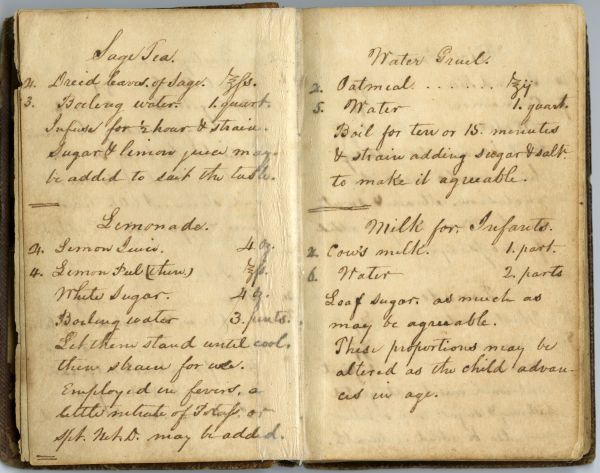 Sage Tea.
2. Dreid leaves of Sage. ℥ſs.
3. Boiling water. 1. quart.
Infuse for ½ hour & strain.
Sugar & limon juice may
be added to suit the taste.
Lemonade.
2. Lemon Juice. 4 oz.
4. Lemon Peel (thin) ℥ſs.
White Sugar. 4 ℥.
Boiling water 3. pints.
Let them stand until cool.
then strain for use.
Employed in fevers, a
little nitrate of Potaſs. or
Spt. Nit. D. may be added.
Water Gruel.
2. Oatmeal ....... ℥ij
5. Water 1. quart.
Boil for ten or 15. minutes
& strain adding sugar & salt.
to make it agreeable.
Milk for Infants.
2. Cow's milk. 1. part.
6. Water 2. parts
Loaf Sugar. as much as
may be agreeable.
These proportions may be
altered as the child advan-
ces in age.